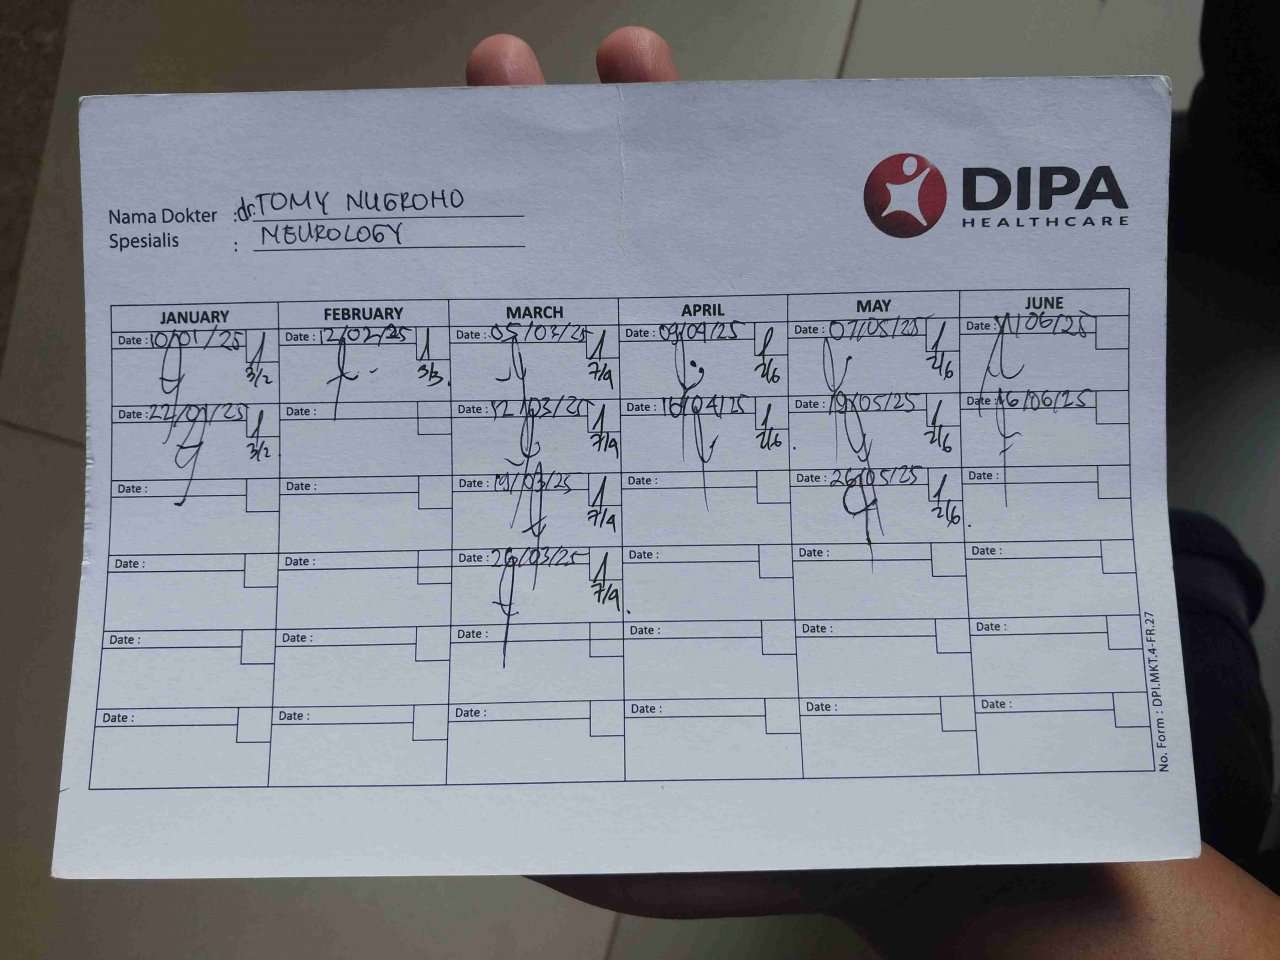 DIPA
HEALTHCARE
Nama Dokter : dr. TOMY NUGROHO
Spesialis : NEUROLOGY
JANUARY FEBRUARY MARCH APRIL MAY JUNE
Date : 10/01/25 Date : 12/02/25 Date : 05/03/25 Date : 09/04/25 Date : 07/05/25 Date : 11/06/25
3/2 3/3 7/4 2/6 2/6
Date : 22/01/25 Date : Date : 12/03/25 Date : 16/04/25 Date : 19/05/25 Date : 16/06/25
3/2 7/4 2/6 2/6
Date : Date : Date : 19/03/25 Date : Date : 26/05/25 Date :
7/4 2/6
Date : Date : Date : 26/03/25 Date : Date : Date :
7/4
Date : Date : Date : Date : Date : Date :
Date : Date : Date : Date : Date : Date :
No. Form : DPI.MKT.4-FR.27